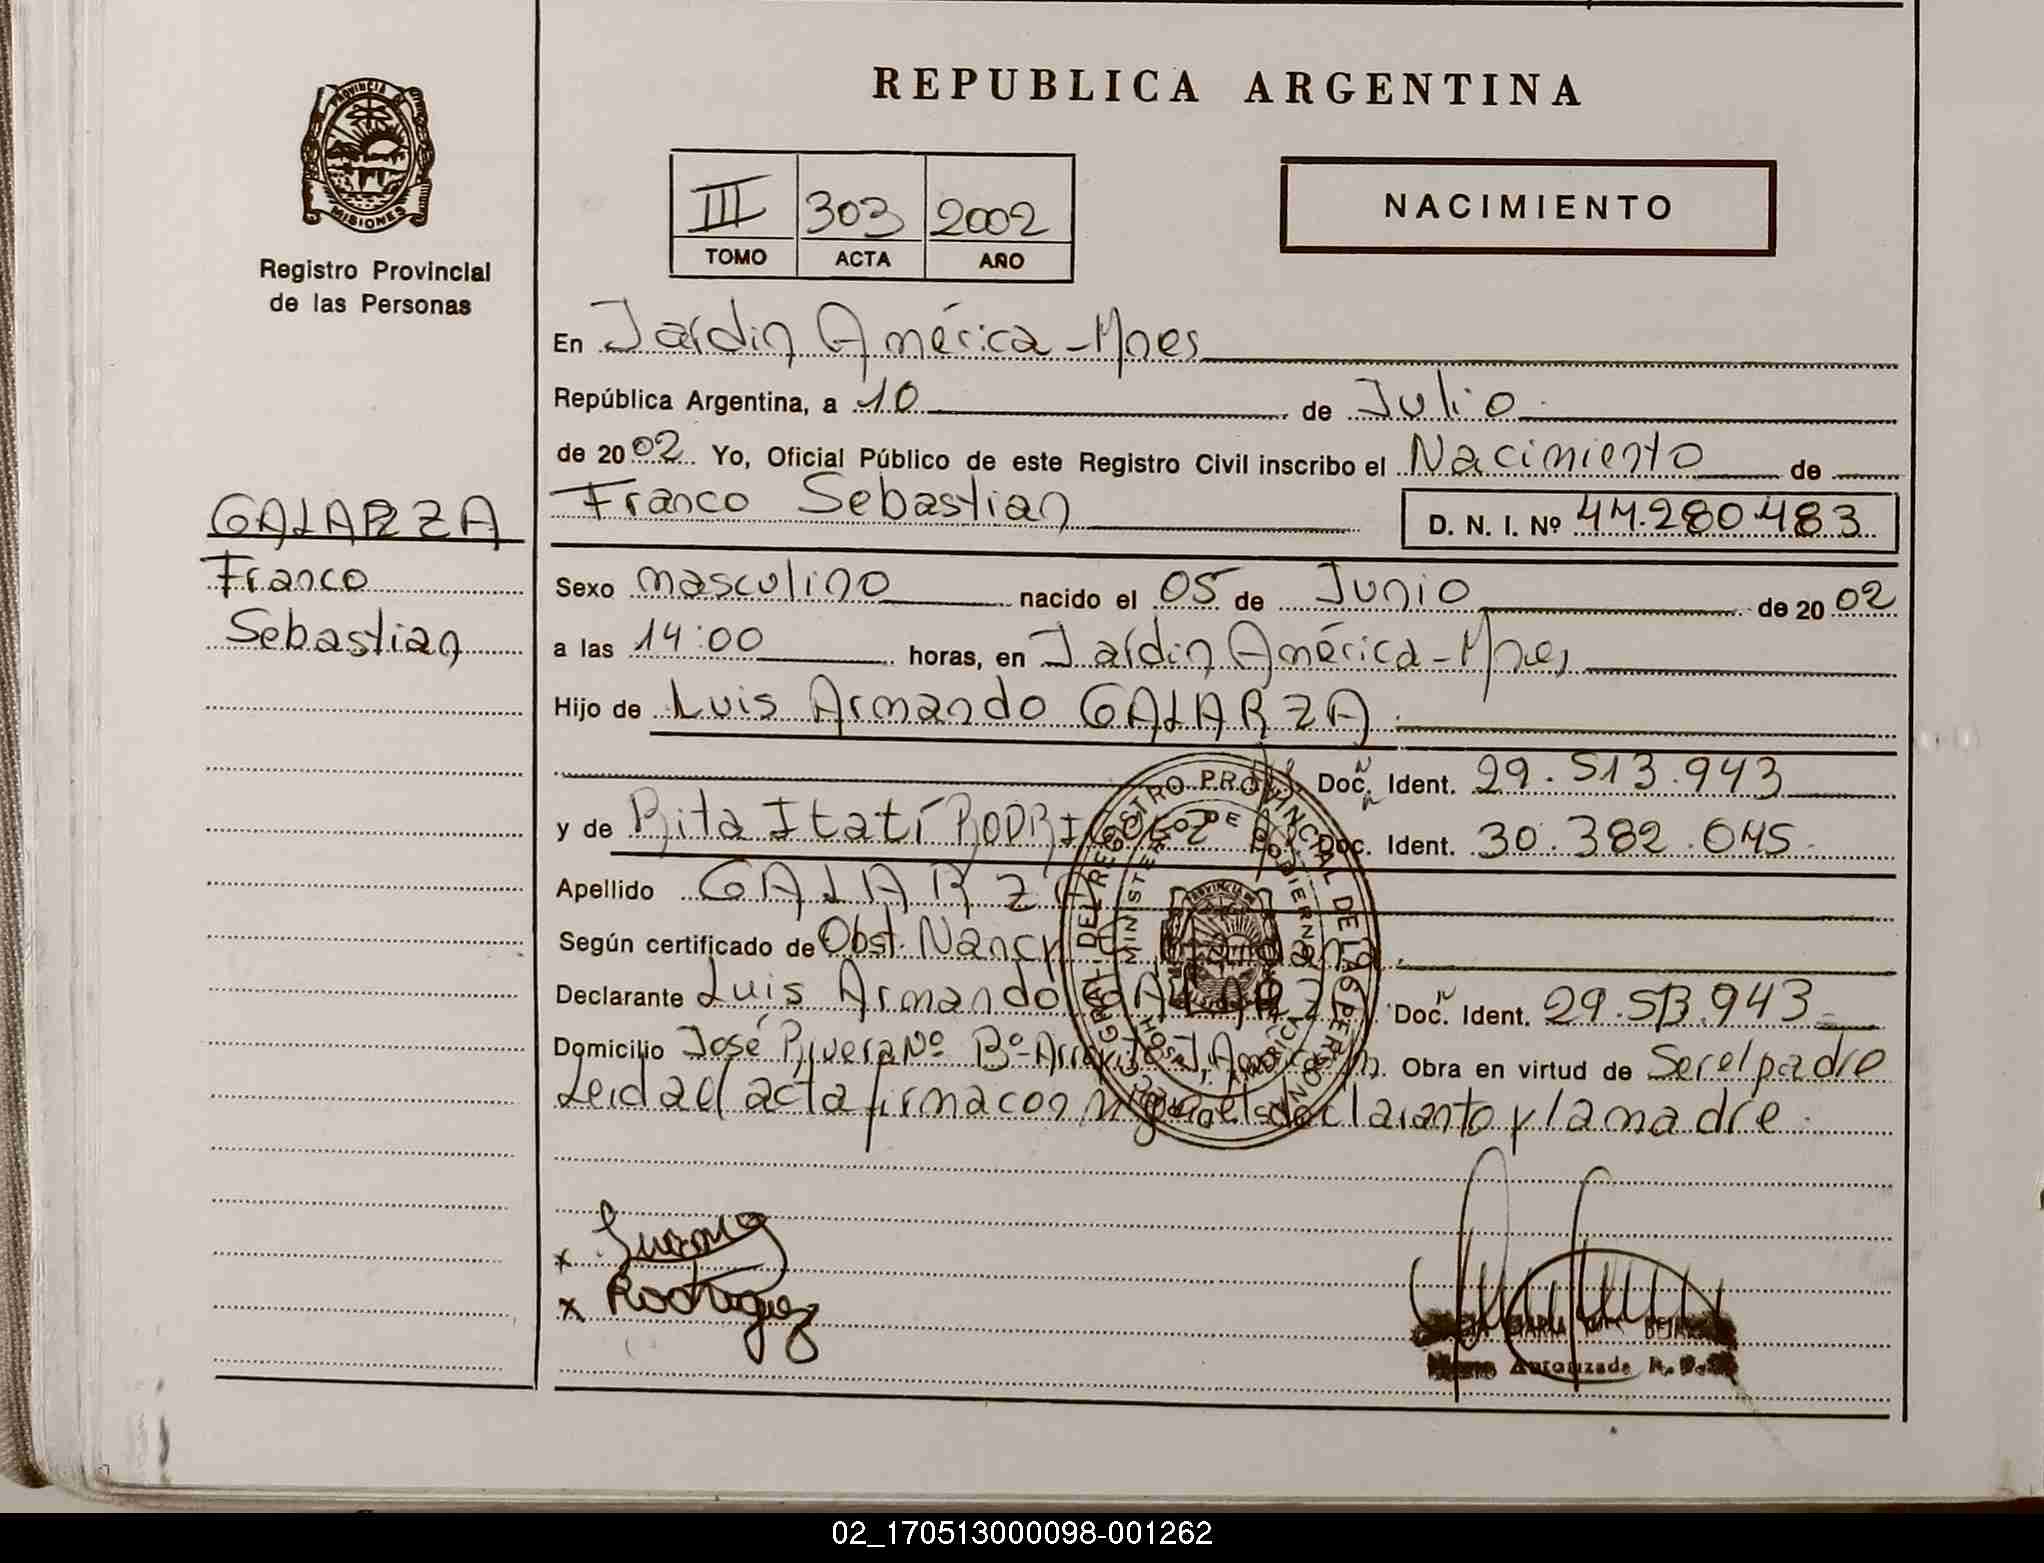 REPUBLICA ARGENTINA
PROVINCIA DE
MISIONES
Registro Provincial
de las Personas
III 303 2002
TOMO ACTA AÑO
NACIMIENTO
En Jardin América - Mnes
República Argentina, a 10 de Julio
de 2002 Yo, Oficial Público de este Registro Civil inscribo el Nacimiento de
Franco Sebastian D. N. I. Nº 44.280.483
GALARZA
Franco
Sebastian
Sexo masculino nacido el 05 de Junio de 2002
a las 14:00 horas, en Jardin América - Mnes
Hijo de Luis Armando GALARZA
Doc. Ident. 29.513.943
y de Rita Itatí RODRIGUEZ Doc. Ident. 30.382.045
Apellido GALARZA
Según certificado de Obst. Nancy
Declarante Luis Armando GALARZA Doc. Ident. 29.513.943
Domicilio José Rivera Nº Bº J. América Obra en virtud de Ser el padre
Leida el acta firma con migo el declarante y la madre.
DEL REGISTRO PROVINCIAL DE LAS PERSONAS
MINISTERIO DE GOBIERNO
x
x Rodriguez
Autorizado
02_170513000098-001262